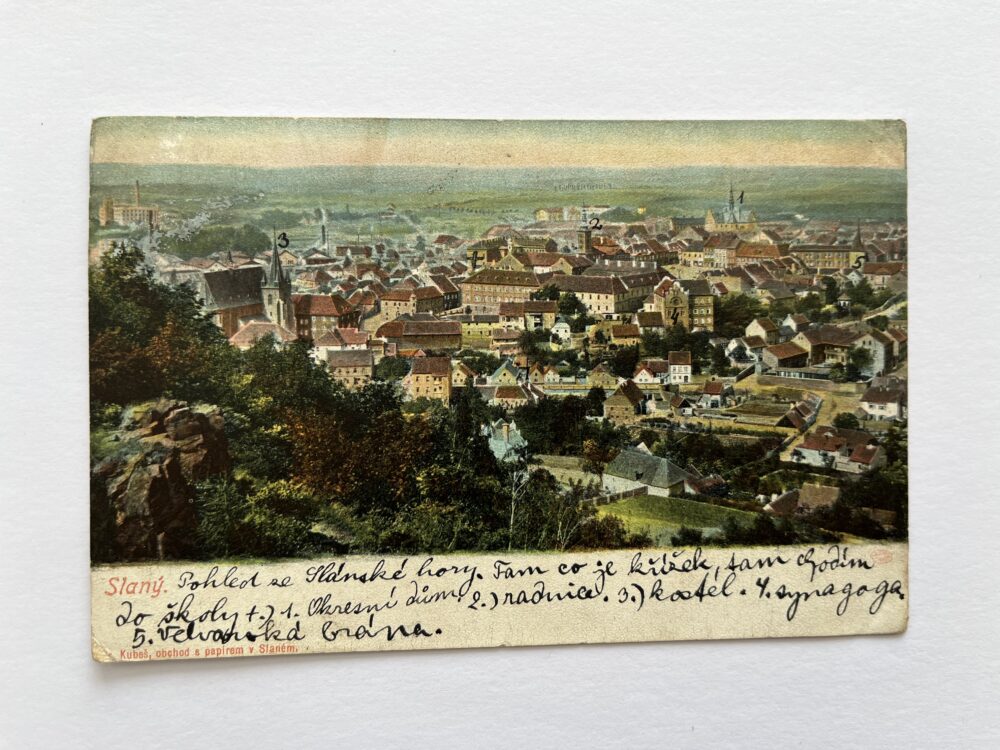 1
2
3
†
5
4
Slaný. Pohled se Slánské hory. Tam co je křížek, tam chodím
do školy †.) 1. Okresní dům 2.) radnice. 3.) kostel. 4. synagoga.
5. Velvarská brána.
Kubeš, obchod s papírem v Slaném.